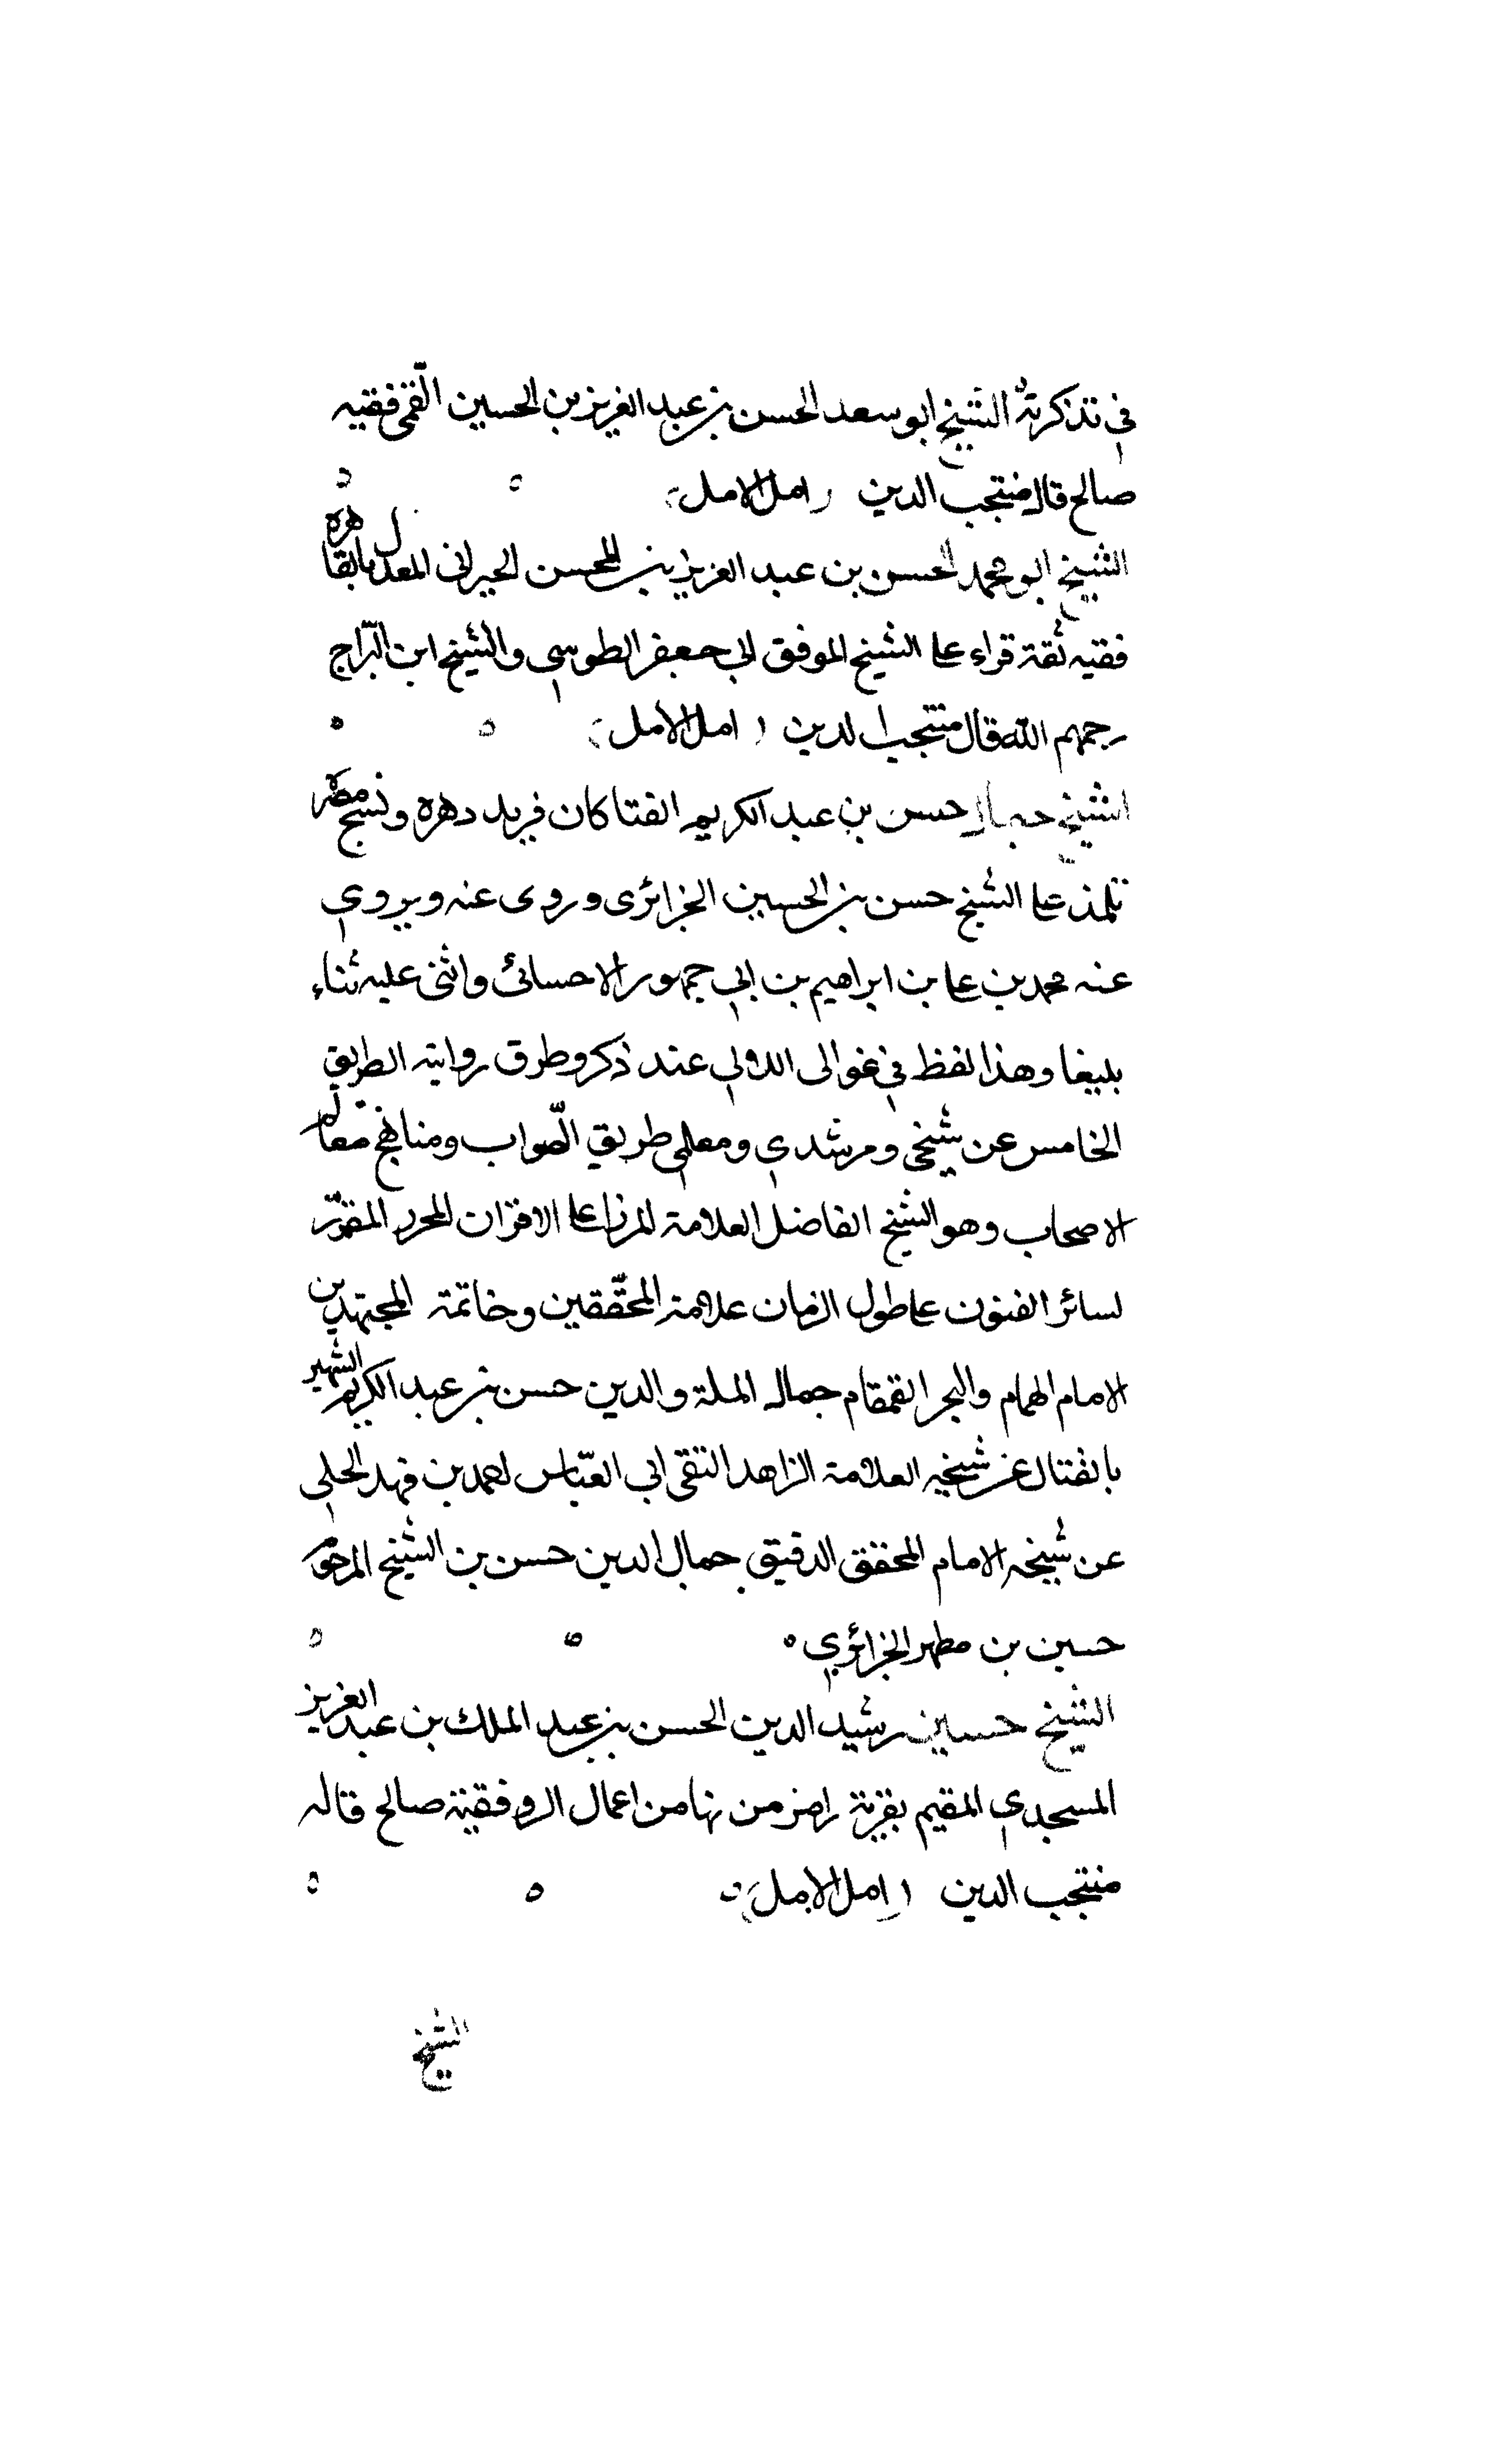 في تذكرته الشيخ ابو سعد الحسن بن عبد العزيز بن الحسين القمى فقيه
صالح قاله منتجب الدين ( امل الامل )
الشيخ ابو محمد الحسن بن عبد العزيز بن المحسن الجيرانى المعدل بالقاهرة
فقيه ثقة قراء على الشيخ الموفق ابي جعفر الطوسي والشيخ ابن البّراج
رحمهم الله قال منتجب الدين ( امل الامل )
الشيخ جمال حسن بن عبد الكريم الفتا كان فريد دهره ونسيج عصره
تلمذ على الشيخ حسن بن الحسين الجزائرى وروى عنه ويروي
عنه محمد بن على بن ابراهيم بن ابي جمهور الاحسائى واثنى عليه ثناء
بليغا وهذا لفظ في غوالى اللالي عند ذكر وطرق روايته الطريق
الخامس عن شيخي ومرشدي ومعلمي طريق الصّواب ومناهج معالم
الاصحاب وهو الشيخ الفاضل العلامة المبرز على الاقران المحرر المقرّر
لسائر الفنون على طول الزمان علامة المحقّقين وخاتمة المجتهدين
الامام الهمام والبحر القمقام جمال الملة والدين حسن بن عبد الكريم الشهير
بالفتال عن شيخيه العلامة الزاهد التقى ابى العبّاس احمد بن فهد الحلي
عن شيخه الامام المحقق الدقيق جمال الدين حسن بن الشيخ المرحوم
حسين بن مطهر الجزائري
الشيخ حسين رشيد الدين الحسن بن عبد الملك بن عبد العزيز
المسجدي المقيم بقرية رامز من نها من اعمال الرو فقيه صالح قاله
منتجب الدين ( امل الامل )
الشيخ